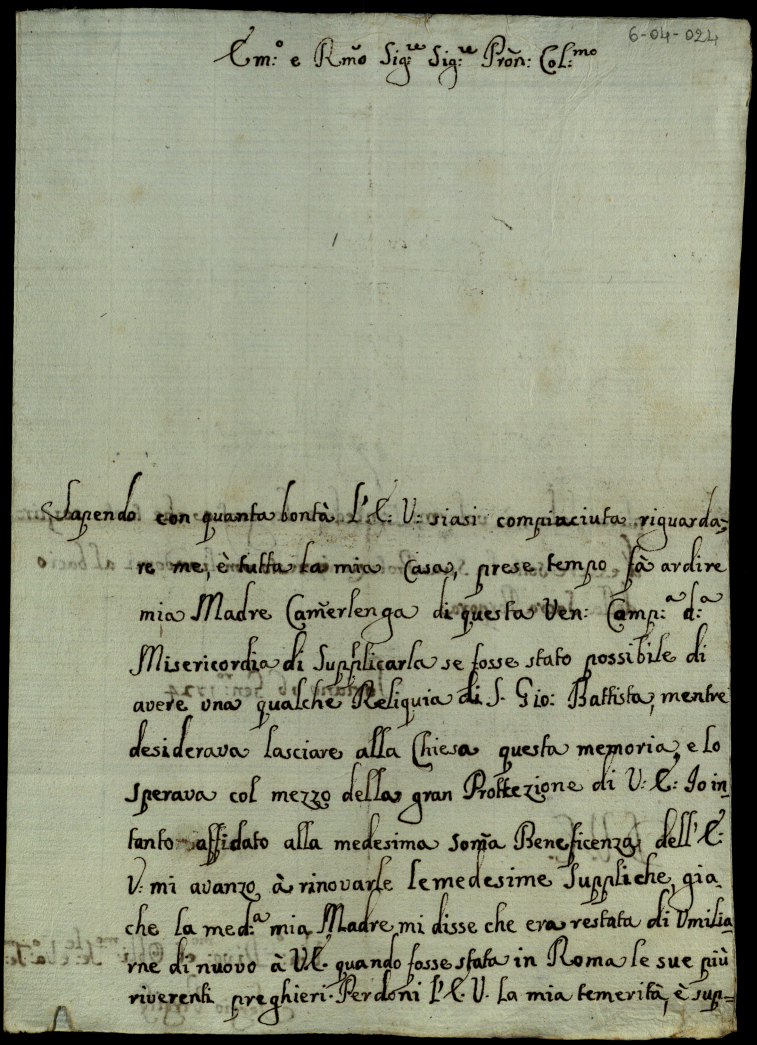 6-04-024
Em:o e Rmo Sig:re Sig:re Pron: Col:mo
Sapendo con quanta bontà l'E: V: siasi compiaciuta riguarda=
re me, è tutta la mia Casa, prese tempo fà ardire
mia Madre Camerlenga di questa Ven: Comp:a d:a
Misericordia di Supplicarla se fosse stato possibile di
avere una qualche Reliquia di S. Gio: Battista, mentre
desiderava lasciare alla Chiesa questa memoria, e lo
sperava col mezzo della gran Prottezione di V: E: Io in
tanto affidato alla medesima soma Beneficenza dell'E:
V: mi avanzo à rinovarle le medesime Suppliche, gia
che la med:a mia Madre mi disse che era restata di Umilia
rne di nuovo à V.E. quando fosse stata in Roma le sue più
riverenti preghieri. Perdoni l'E. V. la mia temerità, è sup=